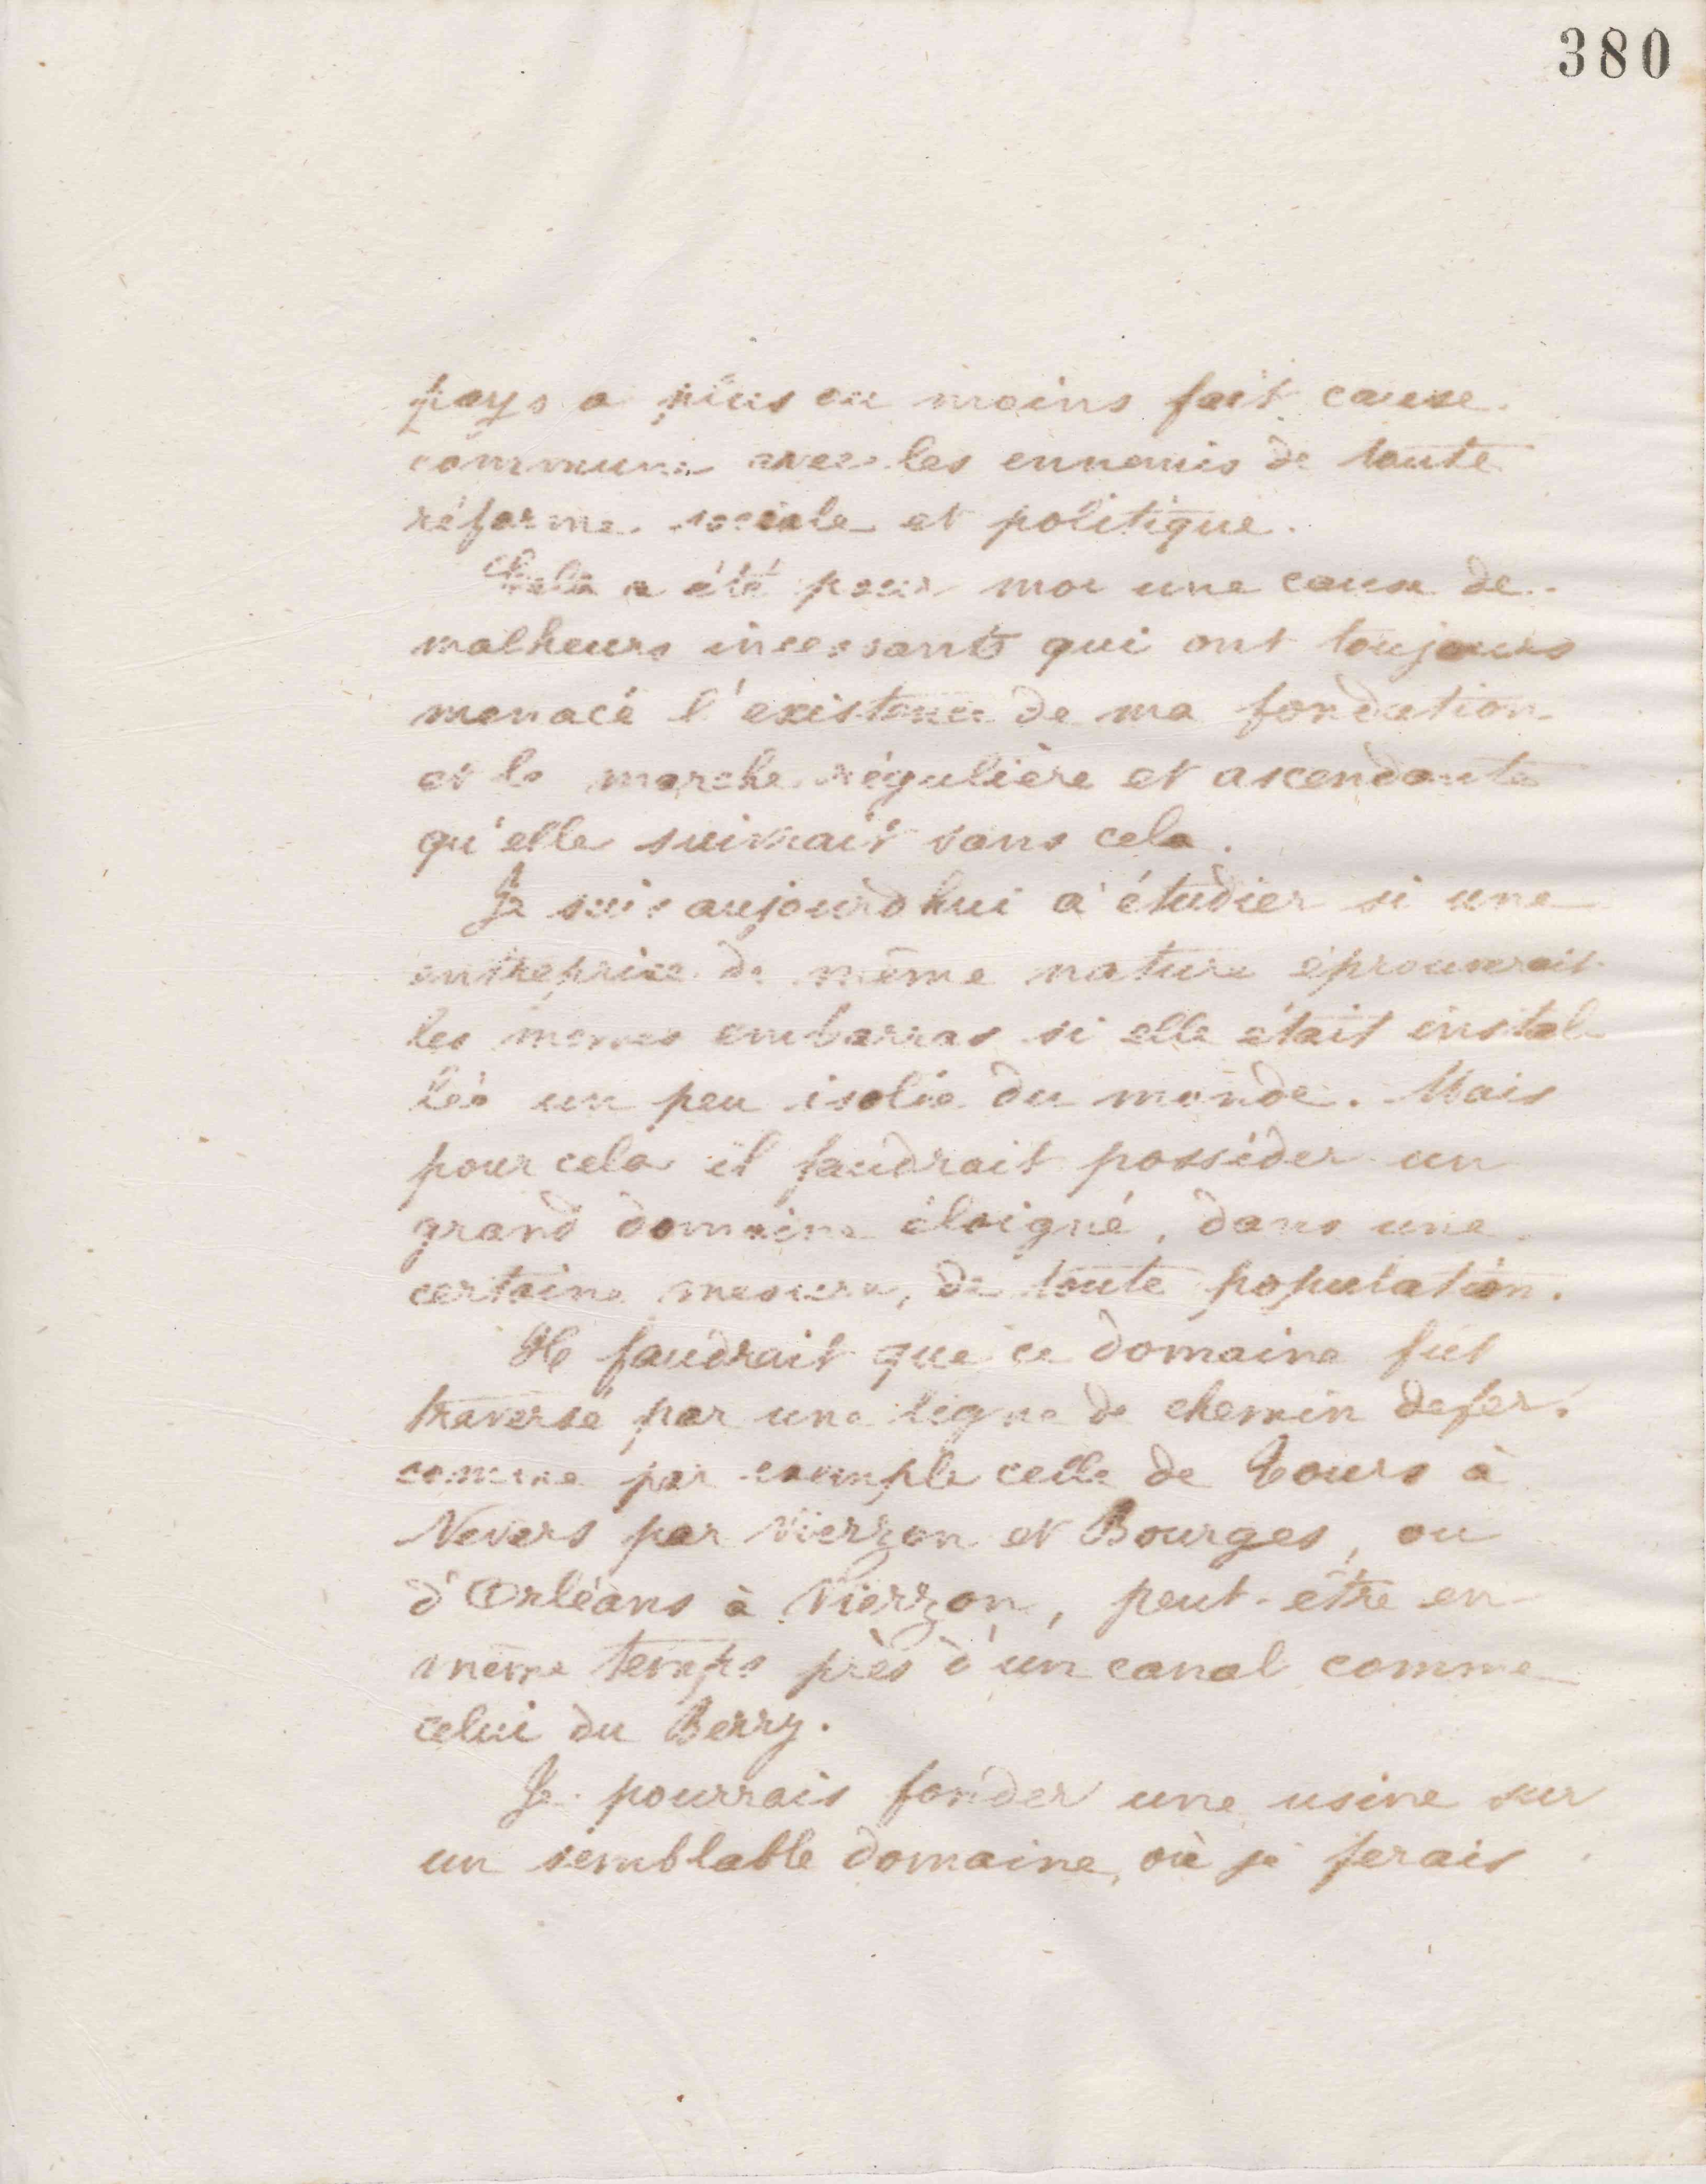 380
pays a plus ou moins fait cause
commune avec les ennemis de toute
réforme sociale et politique.
Cela a été pour moi une cause de
malheurs incessants qui ont toujours
menacé l'existence de ma fondation
et la marche régulière et ascendante
qu'elle suivrait sans cela.
Je suis aujourd'hui à étudier si une
entreprise de même nature éprouverait
les mêmes embarras si elle était instal
lée un peu isolée du monde. Mais
pour cela il faudrait posséder un
grand domaine éloigné, dans une
certaine mesure, de toute population.
Il faudrait que ce domaine fut
traversé par une ligne de chemin de fer,
comme par exemple celle de Tours à
Nevers par Vierzon et Bourges, ou
d'Orléans à Vierzon, peut-être en
même temps près d'un canal comme
celui du Berry.
Je pourrais fonder une usine sur
un semblable domaine, où je ferais